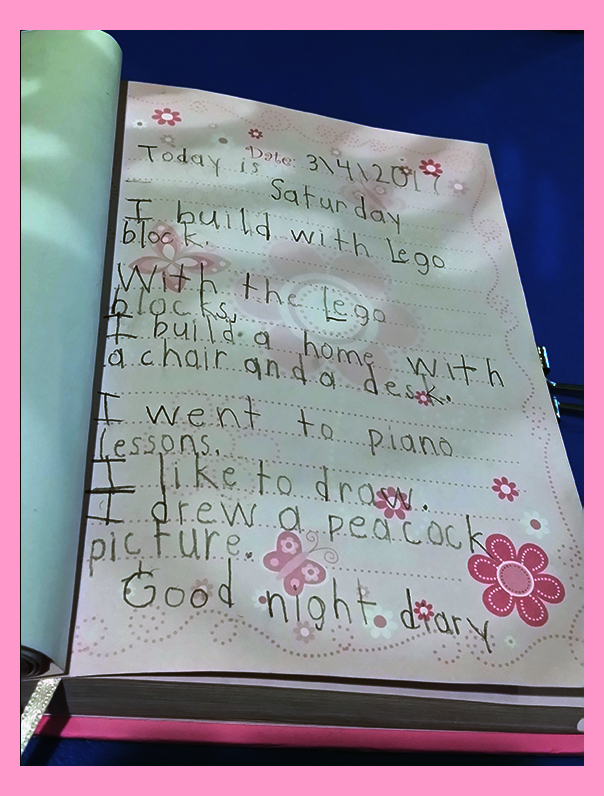 Date: 3\4\2017
Today is
Saturday
I build with Lego
block.
With the Lego
blocks,
I build a home with
a chair and a desk.
I went to piano
Lessons.
I like to draw.
I drew a peacock
picture.
Good night diary